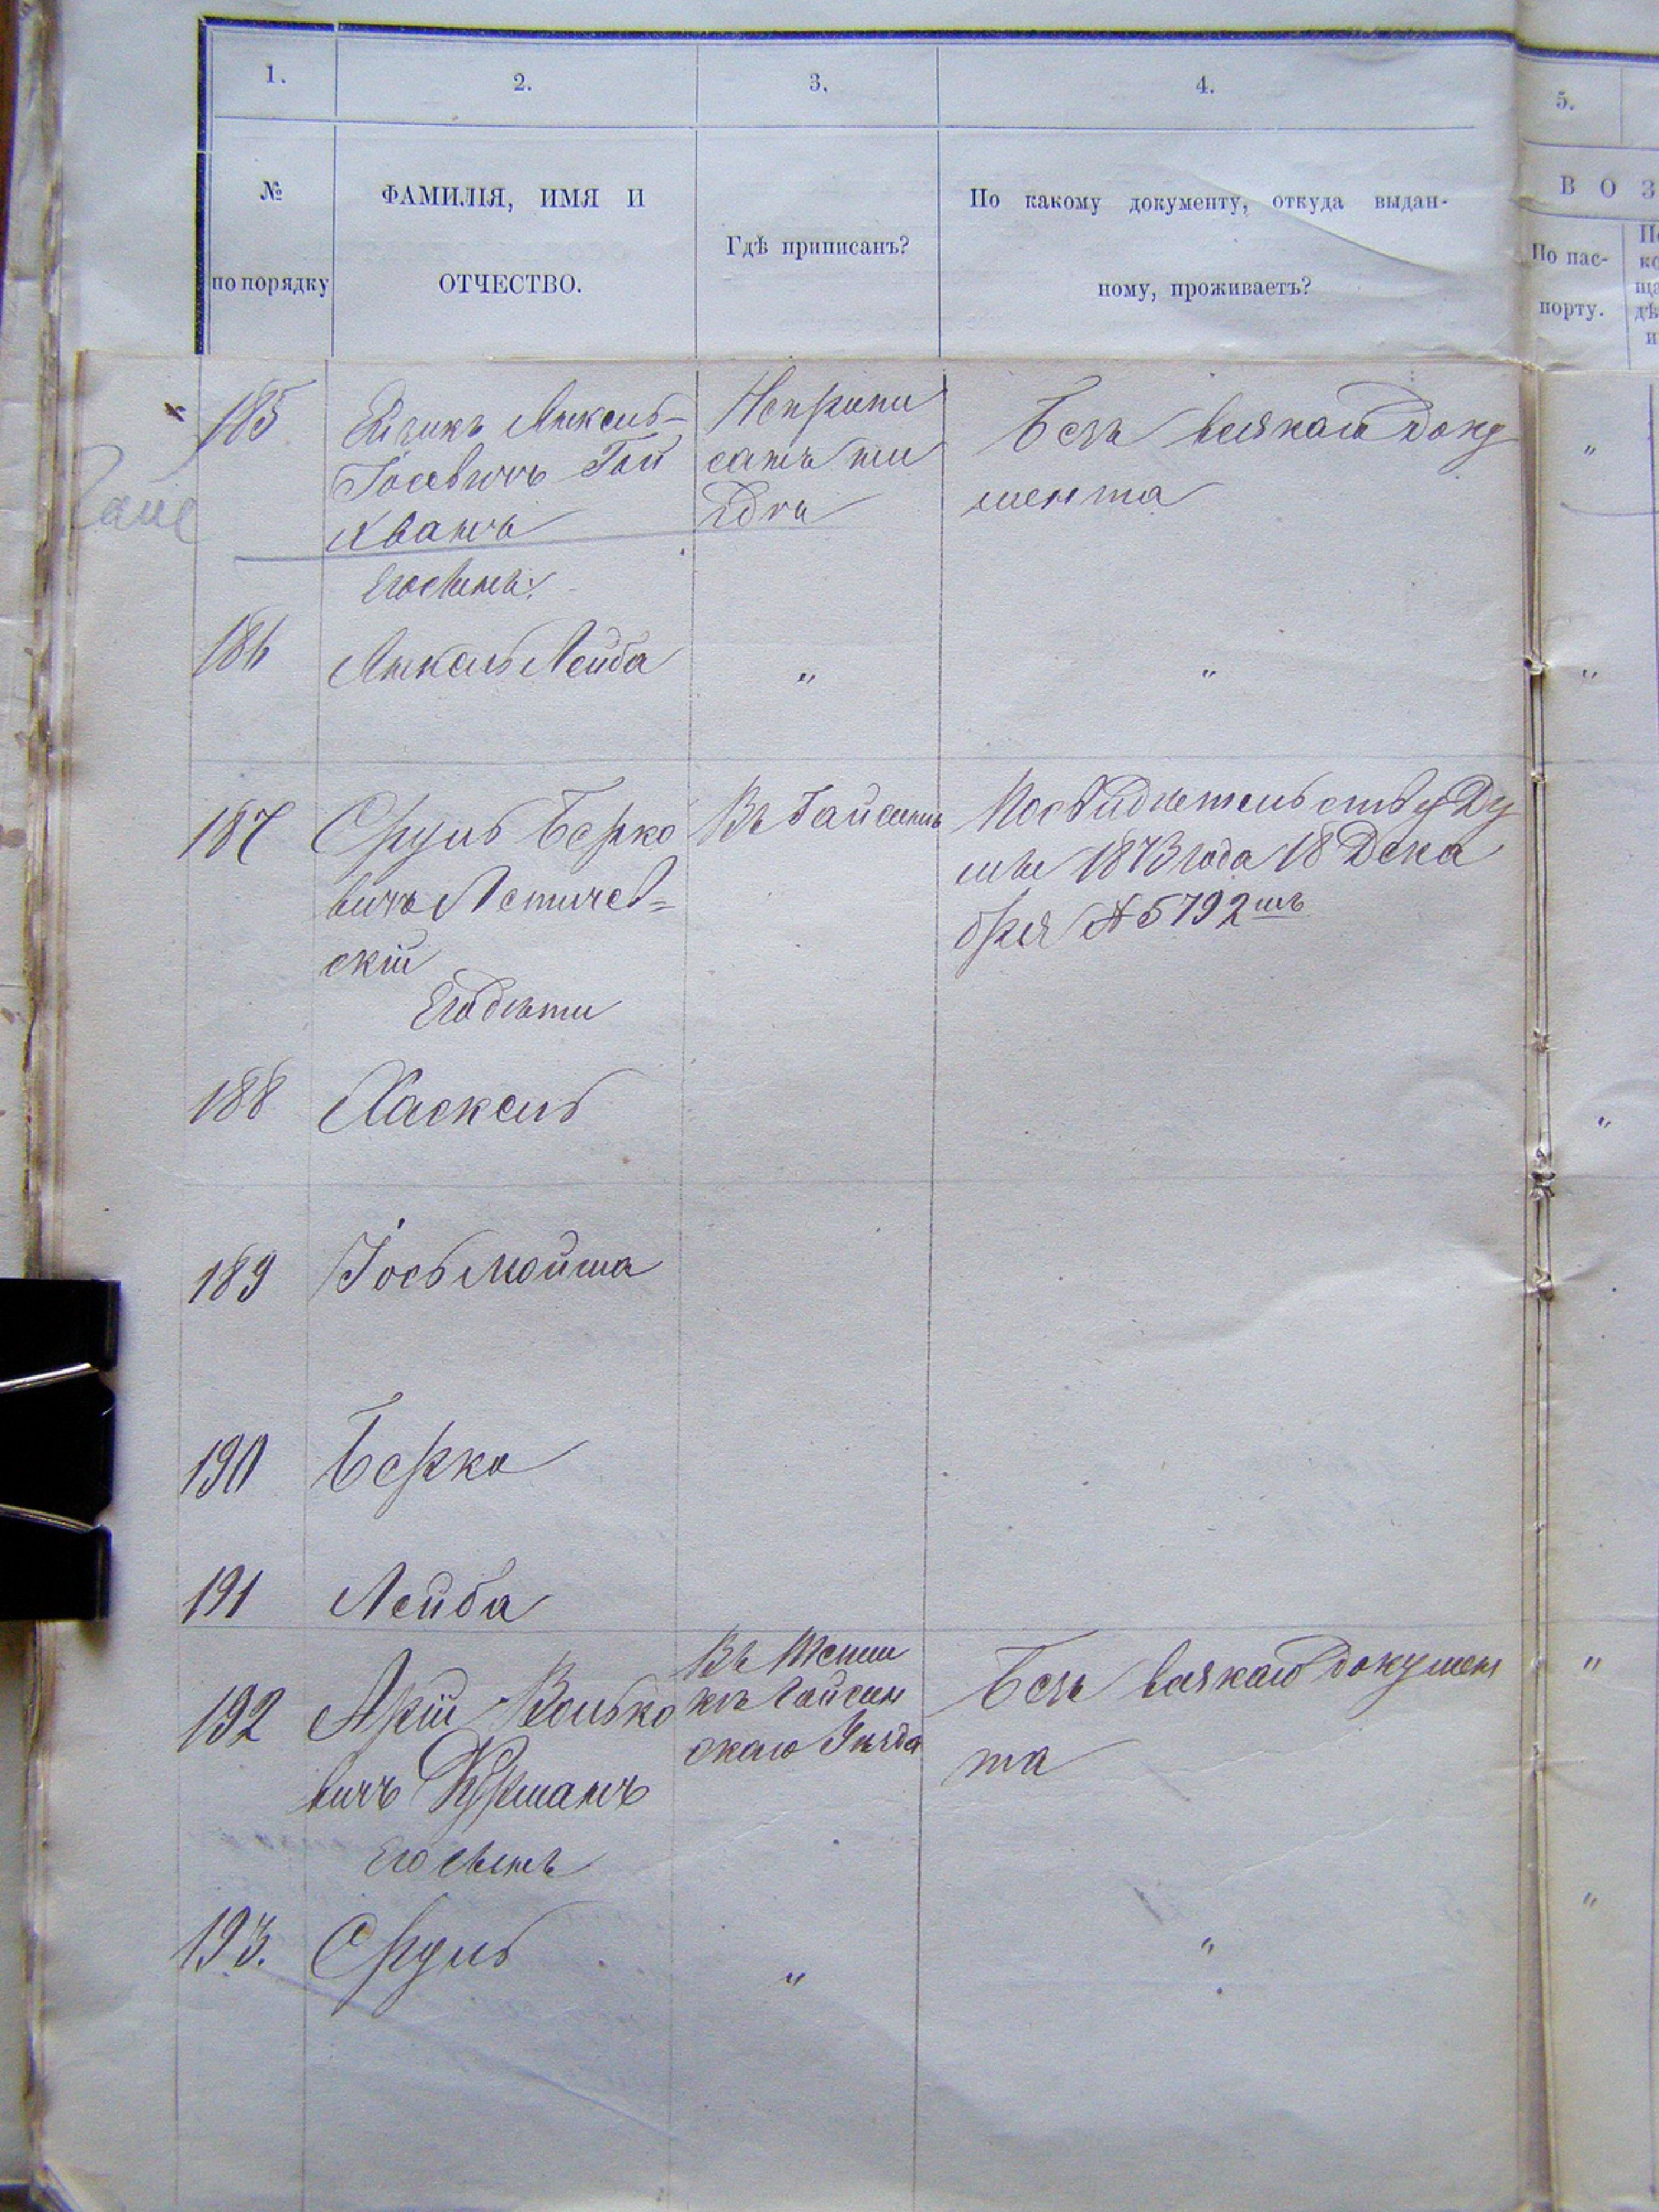 1.
2.
3.
4.
5.
№
по порядку
ФАМИЛІЯ, ИМЯ И
ОТЧЕСТВО.
Гдѣ приписанъ?
По какому документу, откуда выдан-
ному, проживаетъ?
В О З
По пас-
порту.
185
Янкель-
Іосевичъ Гой
хванъ
Неприпи
санъ ни
гдѣ
Безъ всякаго доку
мента
"
Гайс
Его сынъ:
186
Янкель Лейба
"
"
"
187
Сруль Берко
вичъ Летичев=
скій
Въ Гайсинѣ
По свидѣтельству Ду
мы 1873 года 18 Дека
бря № 5792
Его дѣти
188
Хаскель
"
189
Іось Мойша
190
Берко
191
Лейба
192
Арій Волько
вичъ Фурманъ
Въ
Гайсин
скаго Уѣзда
Безъ всякаго докумен
та
"
Его сынъ
193.
Сруль
"
"
"